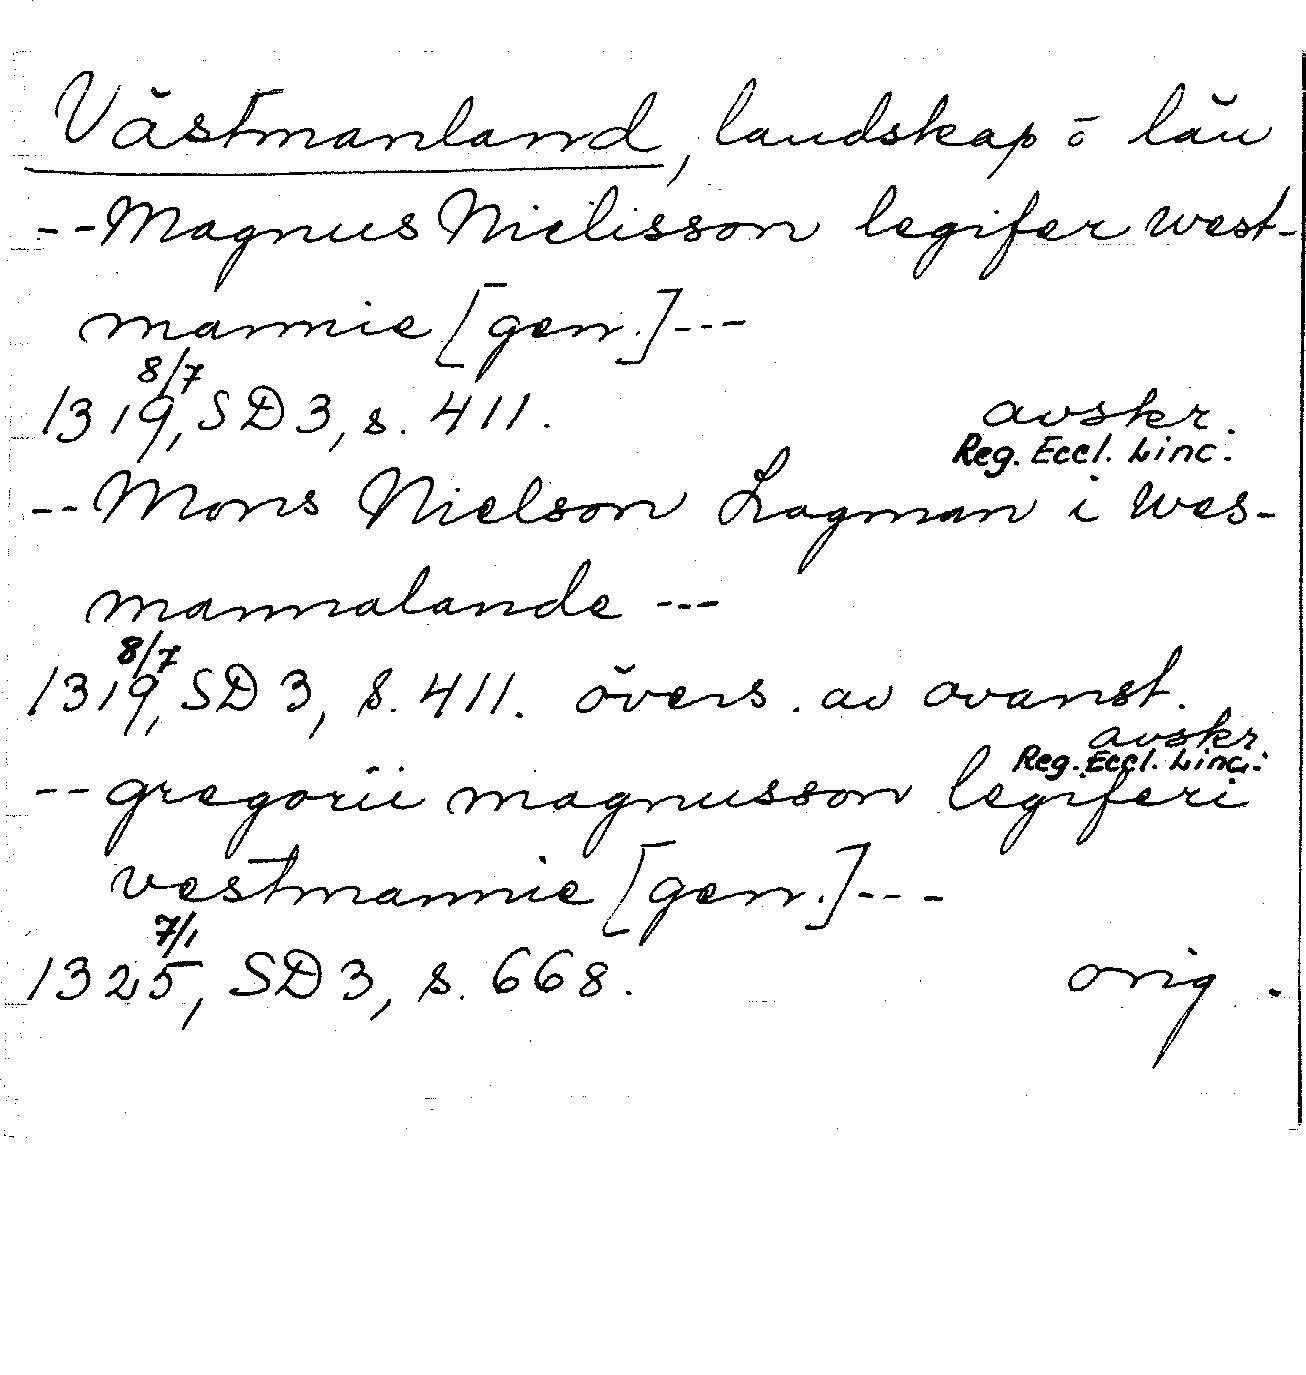 Västmanland, landskap o län
--Magnus Nielisson legifer west-
mannie [gen.]---
8/7
1319, SD 3, s. 411. avskr.
Reg. Eccl. Linc.
--Mons Nielson Lagman i Wes-
mannalande ---
8/7
1319, SD 3, s. 411. övers. av ovanst.
avskr
Reg. Eccl. Linc.
--gregorii magnusson legiferi
vestmannie [gen.]---
7/1
1325, SD 3, s. 668. orig.